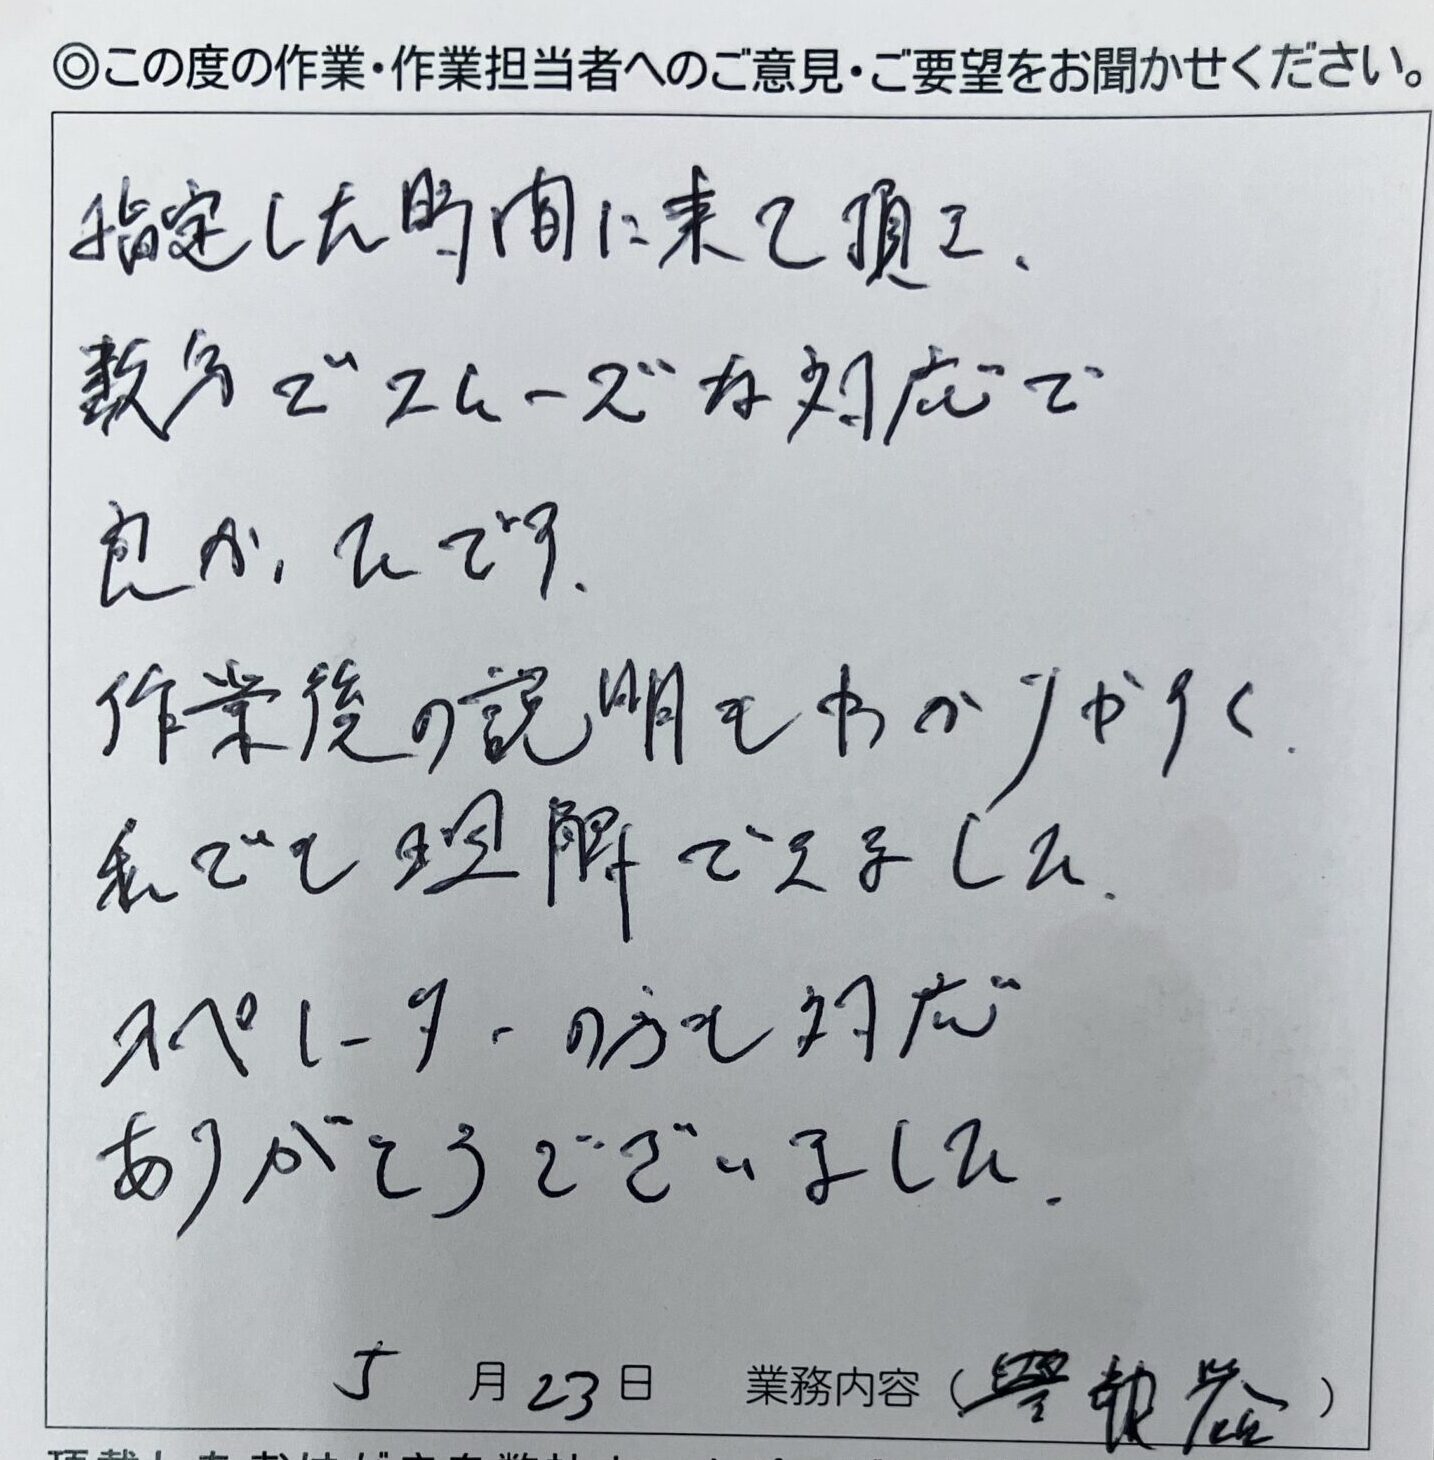 ◎この度の作業・作業担当者へのご意見・ご要望をお聞かせください。
指定した時間に来て頂き、
数分でスムーズな対応で
良かったです。
作業後の説明もわかりやすく、
私でも理解できました。
オペレーターの方も対応
ありがとうございました。
5月23日 業務内容（警報器）